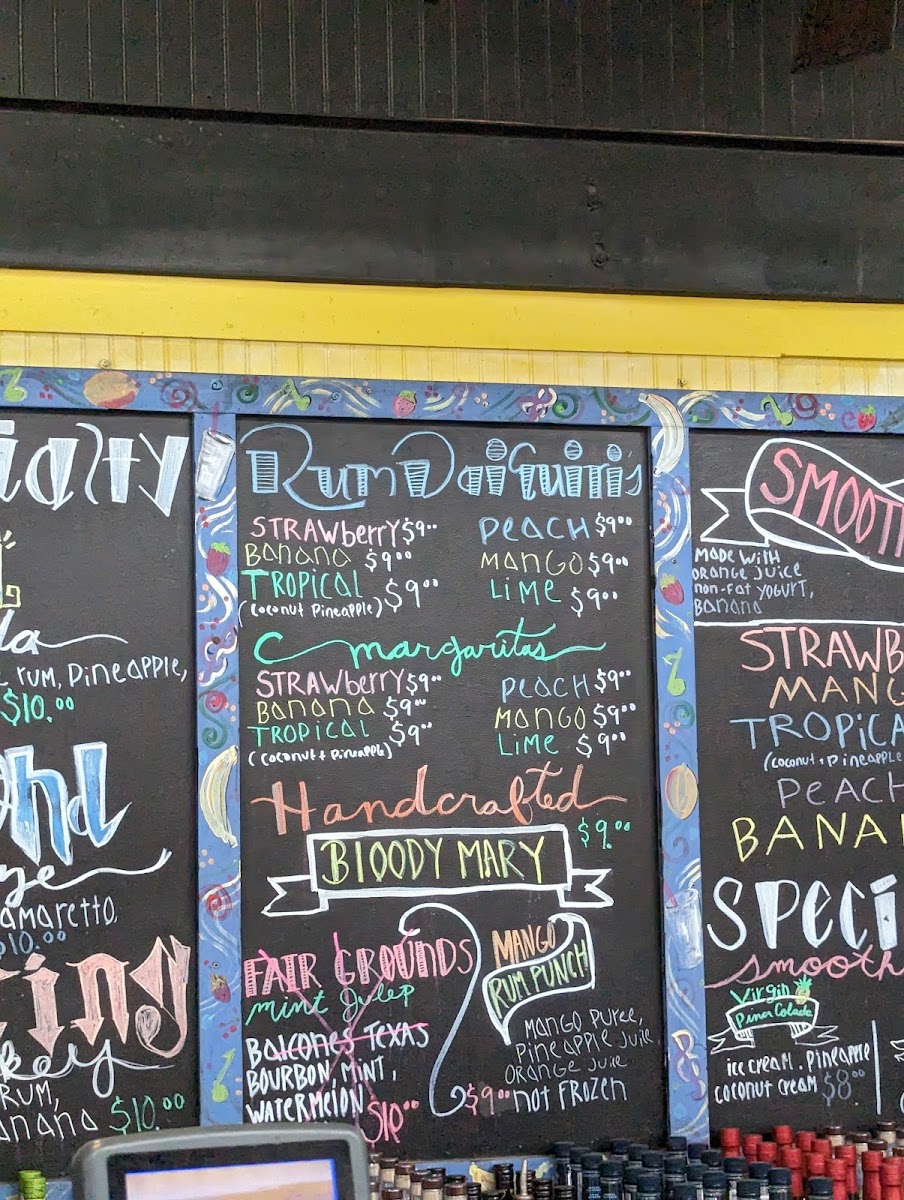 ialty
rum, Pineapple,
$10.00
amaretto,
$10.00
RUM,
$10.00
Rum Daiquiri's
STRAWberry $9.00
BANANA $9.00
TROPICAL $9.00
(Coconut Pineapple)
PEACH $9.00
MANGO $9.00
LIME $9.00
margaritas
STRAWberry $9.00
BANANA $9.00
TROPICAL $9.00
(Coconut + Pineapple)
PEACH $9.00
MANGO $9.00
LIME $9.00
Handcrafted
$9.00
BLOODY MARY
FAIR GROUNDS
mint Julep
Balcones Texas
BOURBON, MINT,
WATERMELON $10.00
MANGO
RUM PUNCH
Mango Puree,
Pineapple Juice
Orange Juice
$9.00 NOT FROZEN
SMOOT
MADE WITH
ORANGE JUICE
NON-FAT YOGURT,
BANANA
STRAWB
MANG
TROPICA
(Coconut + Pineapple
PEACH
BANA
SPECI
smooth
Virgin
Pina Colada
ICE CREAM, PINEAPPLE
COCONUT CREAM $8.00